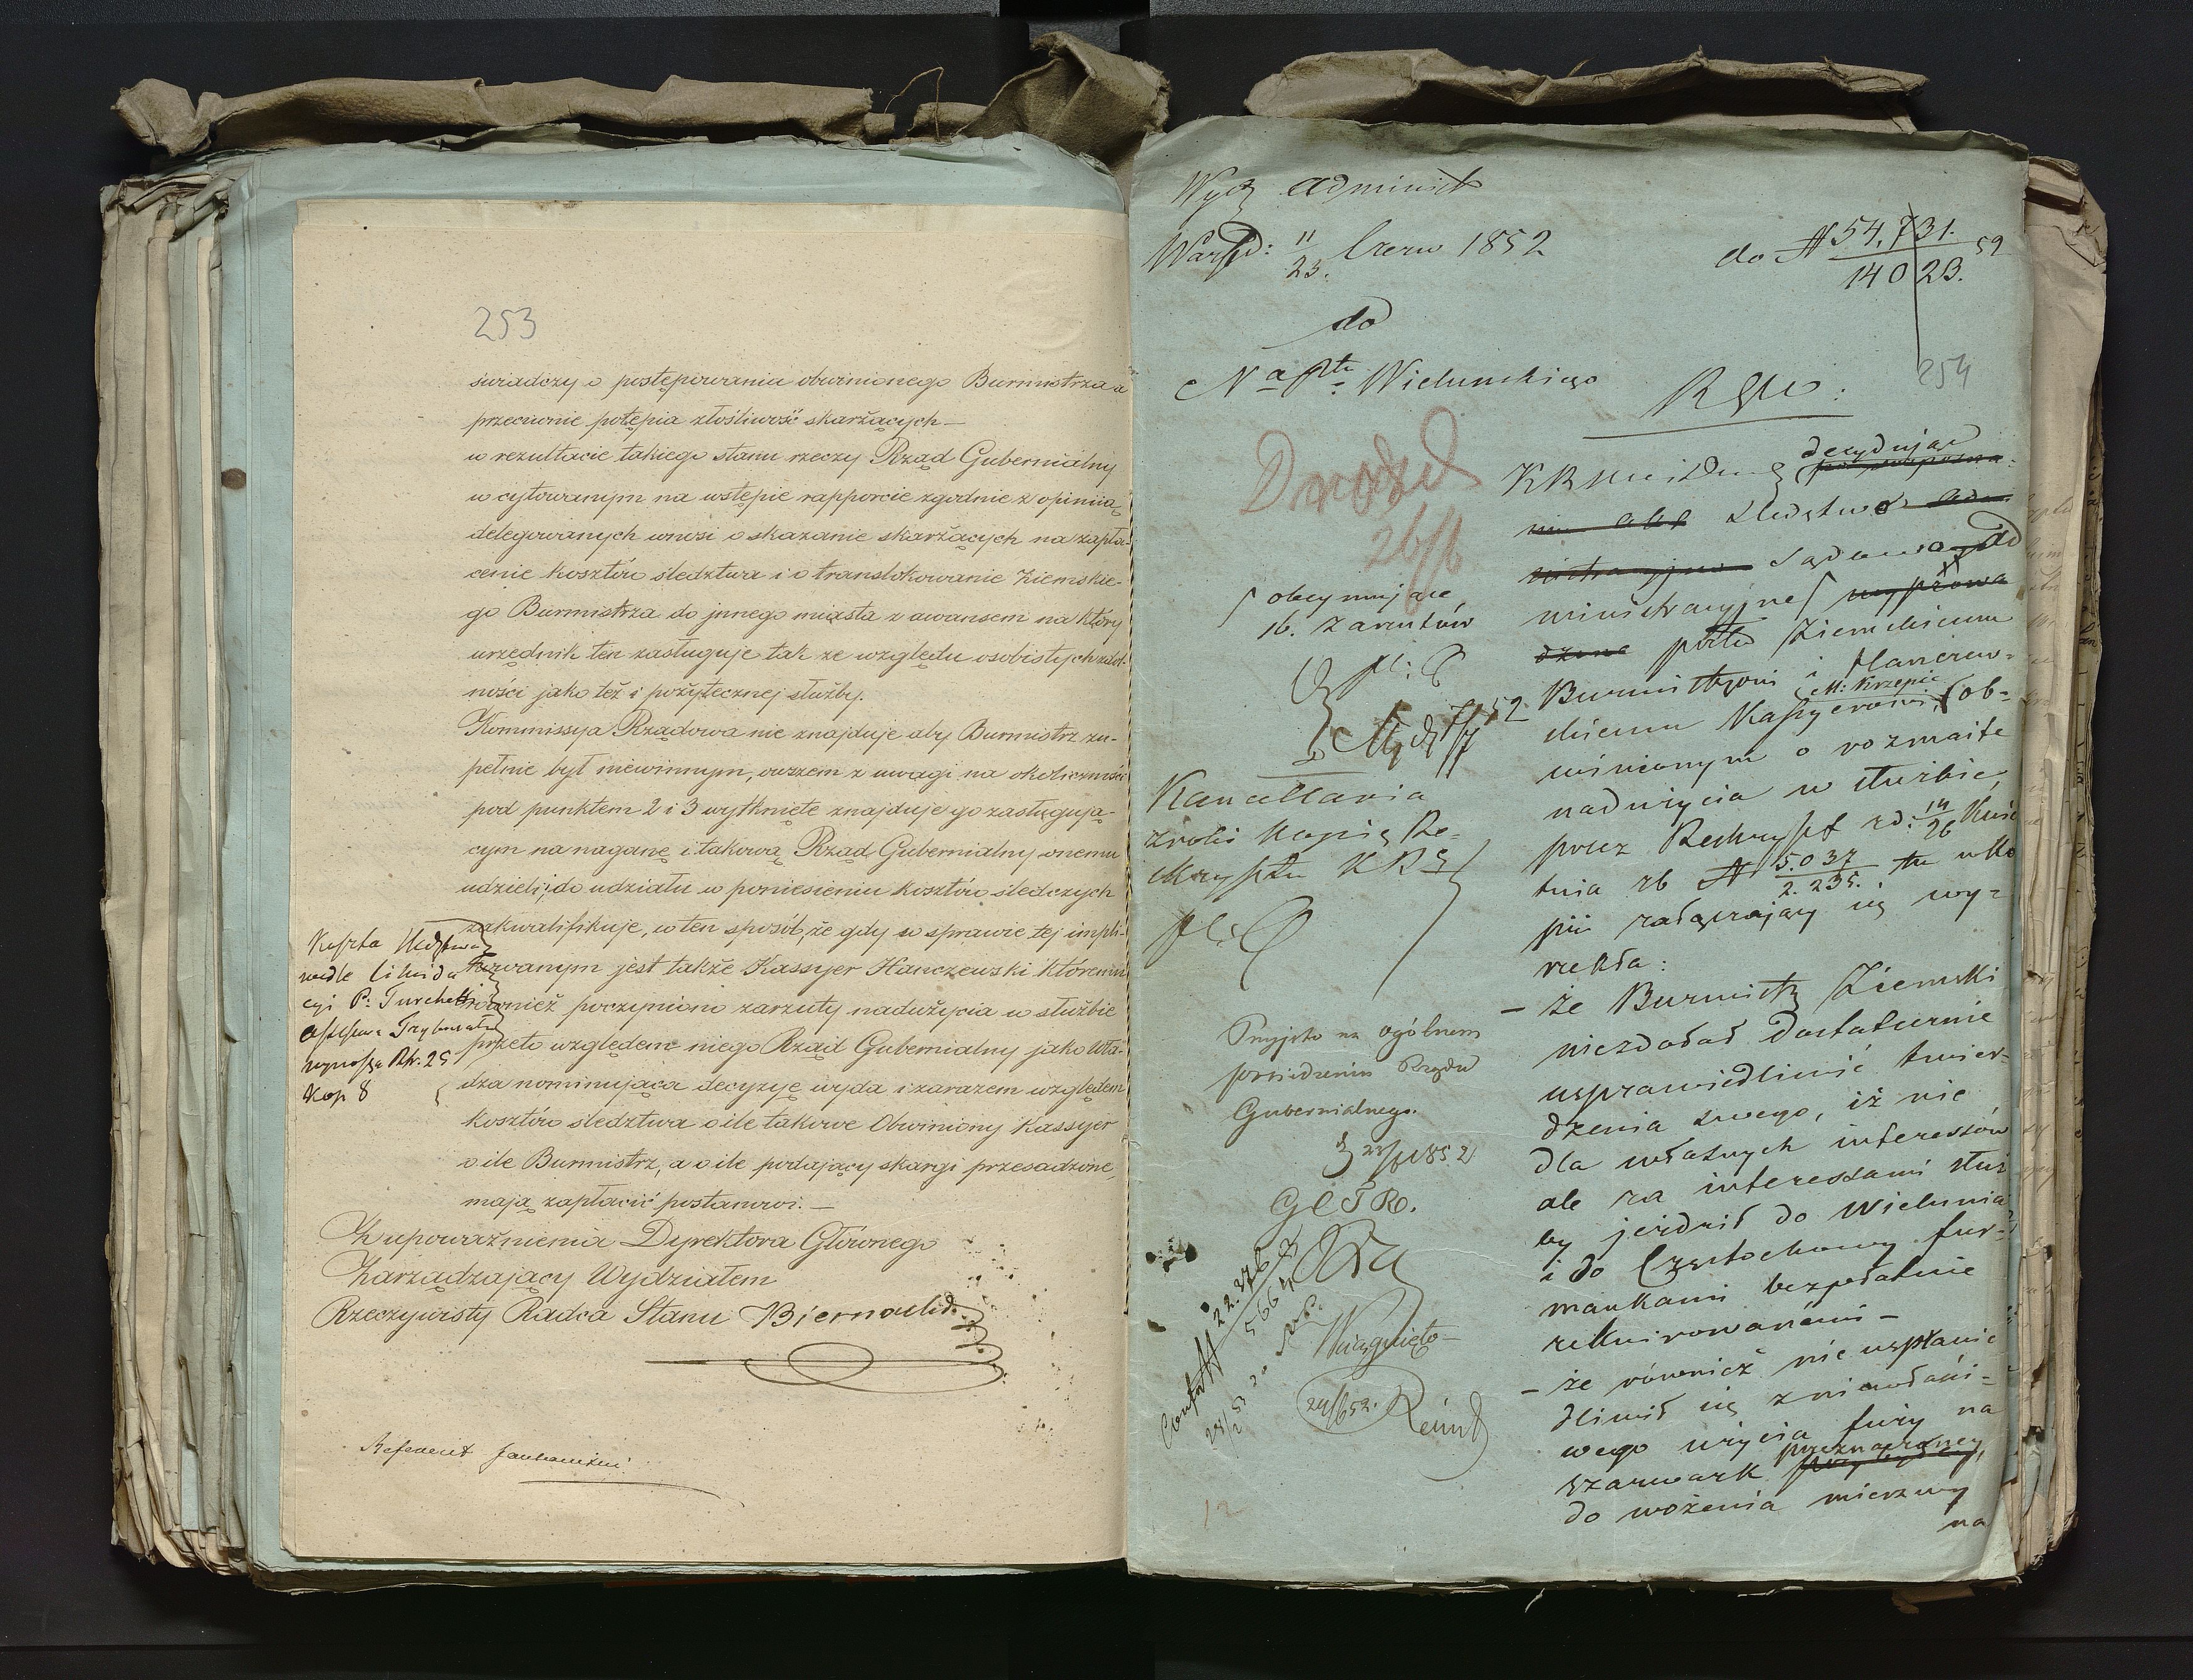 253
świadczy o postępowaniu obwinionego Burmistrza a
przeciwnie potępia złośliwość skarżących —
w rezultacie takiego stanu rzeczy Rząd Gubernialny
w cytowanym na wstępie rapporcie zgodnie z opinią
delegowanych wnosi o skazanie skarżących na zapła-
cenie kosztów śledztwa i o translokowanie Ziemskie-
go Burmistrza do innego miasta z awansem na który
urzędnik ten zasługuje tak ze względu osobistych zdol-
ności jako też i pożytecznej służby.
Kommissya Rządowa nie znajduje aby Burmistrz zu-
pełnie był niewinnym, owszem z uwagi na okoliczności
pod punktem 2 i 3 wytknięte znajduje go zasługują-
cym na naganę i takową Rząd Gubernialny onemu
udzieli; do udziału w poniesieniu kosztów śledczych
zakwalifikuje, w ten sposób, że gdy w sprawie tej impli-
kowanym jest także Kassyer Hanczewski któremu
również poczyniono zarzuty nadużycia w służbie
przeto względem niego Rząd Gubernialny jako Wła-
dza nominująca decyzyę wyda i zarazem względem
kosztów śledztwa o ile takowe Obwiniony Kassyer
o ile Burmistrz, a o ile podający skargi przesadzone,
mają zapłacić postanowi. —
Koszta śledztwa
wedle likwida
cyi P: Turchetti
Assessora Trybunału
wynoszą Rbr. 25
Kop 8
Z upoważnienia Dyrektora Głównego
Zarządzający Wydziałem
Rzeczywisty Radca Stanu Biernacki
Referent
Wydz Administ
Warsz d: 11/23. Czerw 1852
do № 54,731./14023. 52
do
Na Ptu Wieluńskiego
254
Drozd
26/6
obeymujące
16. zarzutów
Kancellaria
zrobi kopię Re-
skryptu KR
Przyjęto na ogólnem
posiedzeniu Rządu
Gubernialnego.
1852
Wciągnięto —
24/6 52.
12
decydując
Śledztwo
Sądowo ad
ministracyjne
przeciw Ziemskiemu
Burmistrzowi i Hanczew-
skiemu Kassyerowi M: Krzepic ob-
winionym o rozmaite
nadużycia w służbie,
przez Reskrypt z d: 14/26 Kwie
tnia rb № 5.037/2.235. tu w ko
pii załączający się wy-
rzekła:
— że Burmistrz Ziemski
niezdołał dostatecznie
usprawiedliwić twier-
dzenia swego, iż nie
dla własnych interessów
ale za interessami służ
by jeździł do Wielunia
i do Częstochowy fur-
mankami bezpłatnie
rekwirowanemi —
— że również nie uspławie
dliwił się z niewłaści-
wego użycia fury na
szarwark przeznaczoney,
do wożenia mierzwy
na